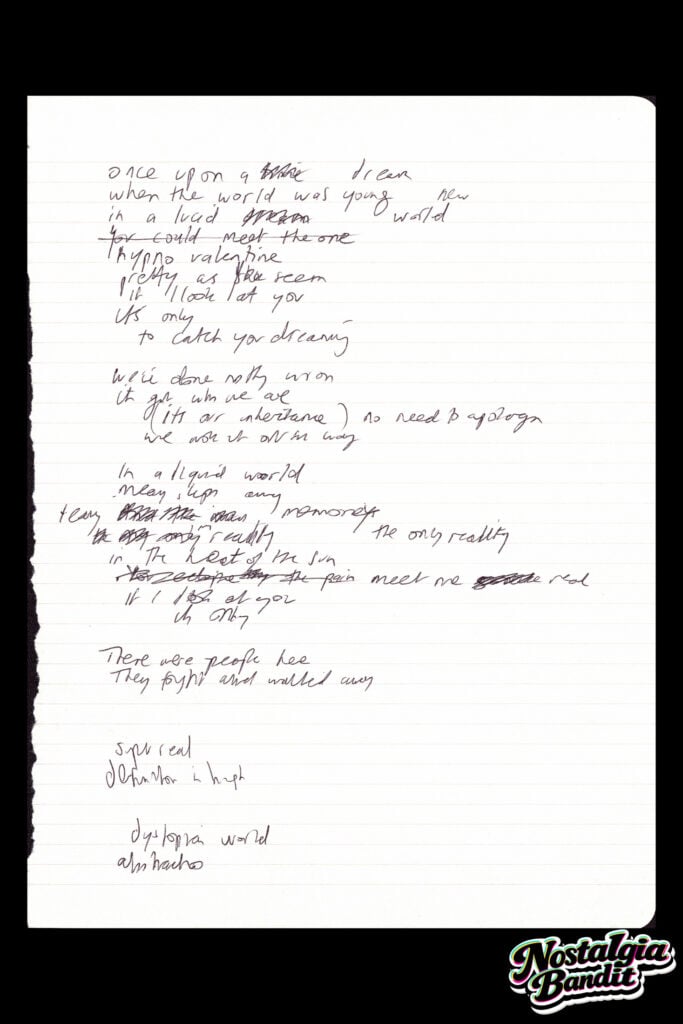 once upon a dream
when the world was young new
in a lucid world
You could meet the one
hypno valentine
pretty as seem
if I look at you
it's only
to catch you dreaming
we're done nothing wron
it who we are
(its our inheritance) no need to apologn
we out way
In a liquid world
away
teary memory
only reality the only reality
in the heat of the sun
the pain meet me real
if I look at you
its only
There were people here
They fought and walked away
super real
definition is high
dystopian world
Nostalgia
Bandit